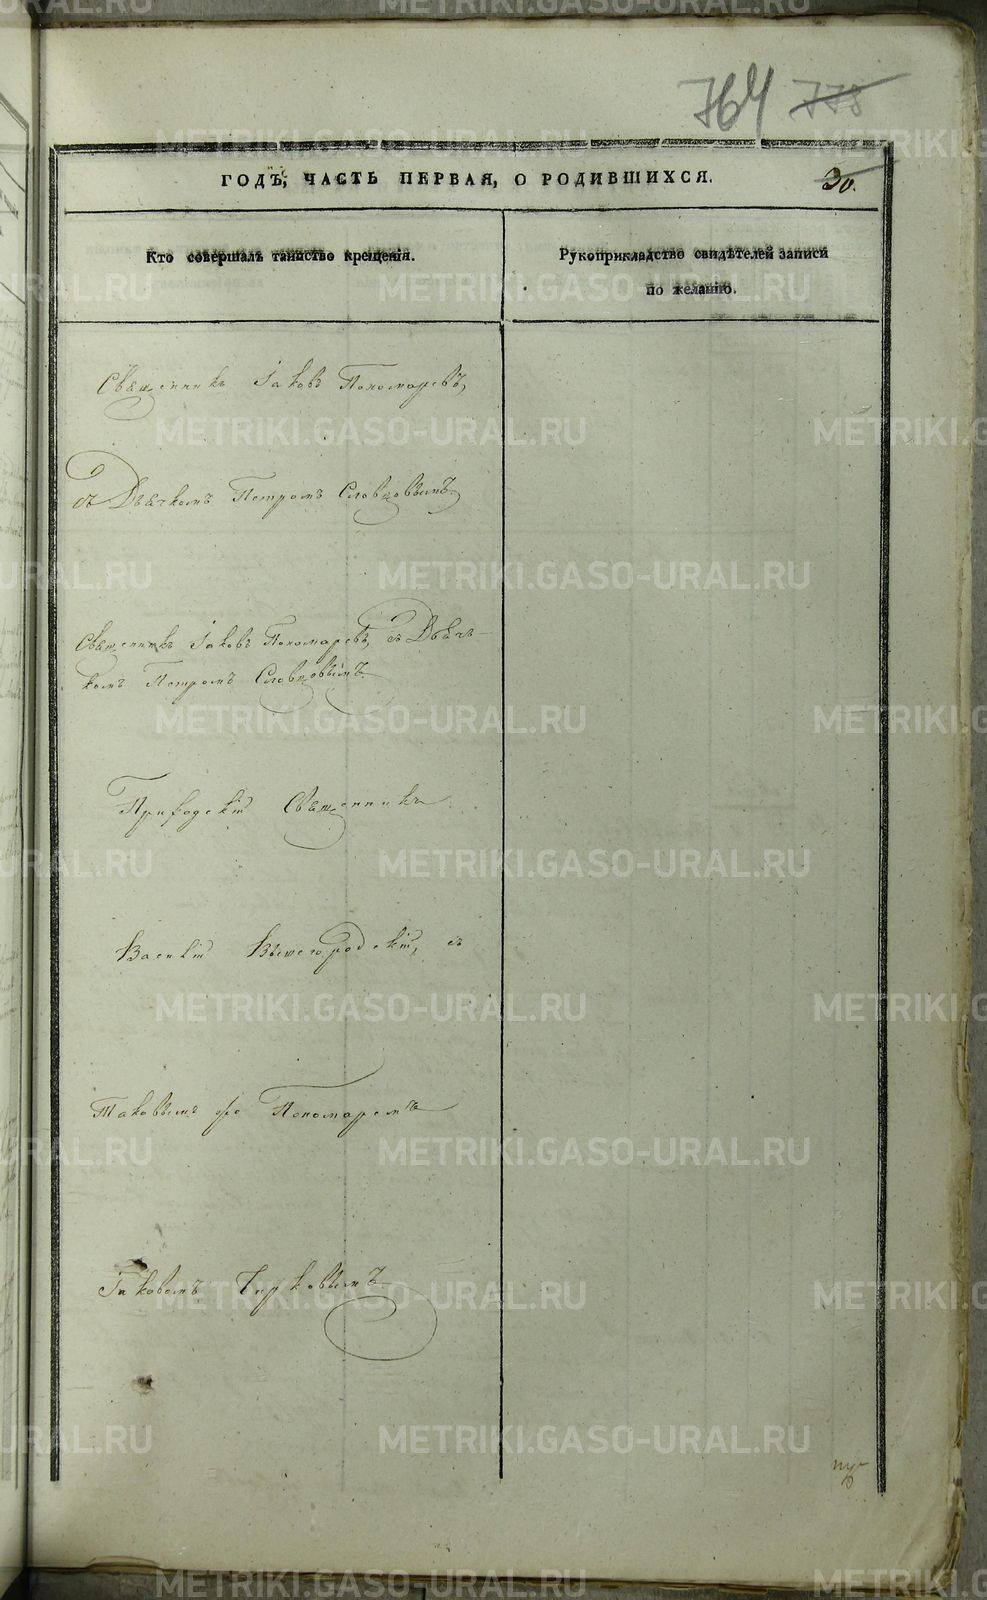 764 778
ГОДЪ, ЧАСТЬ ПЕРВАЯ, О РОДИВШИХСЯ.
30.
Кто совершалъ таинство крещенія.
Рукоприкладство свидѣтелей записи
по желанію.
Священникъ Іаковъ Пономаревъ,
съ Дьячкомъ Петромъ Словцовымъ.
Священникъ Іаковъ Пономаревъ, съ Дьяч-
комъ Петромъ Словцовымъ.
Приходскій Священникъ
Василій Вышегородскій, съ
таковымъ же Пономаремъ
Іаковомъ
METRIKI.GASO-URAL.RU